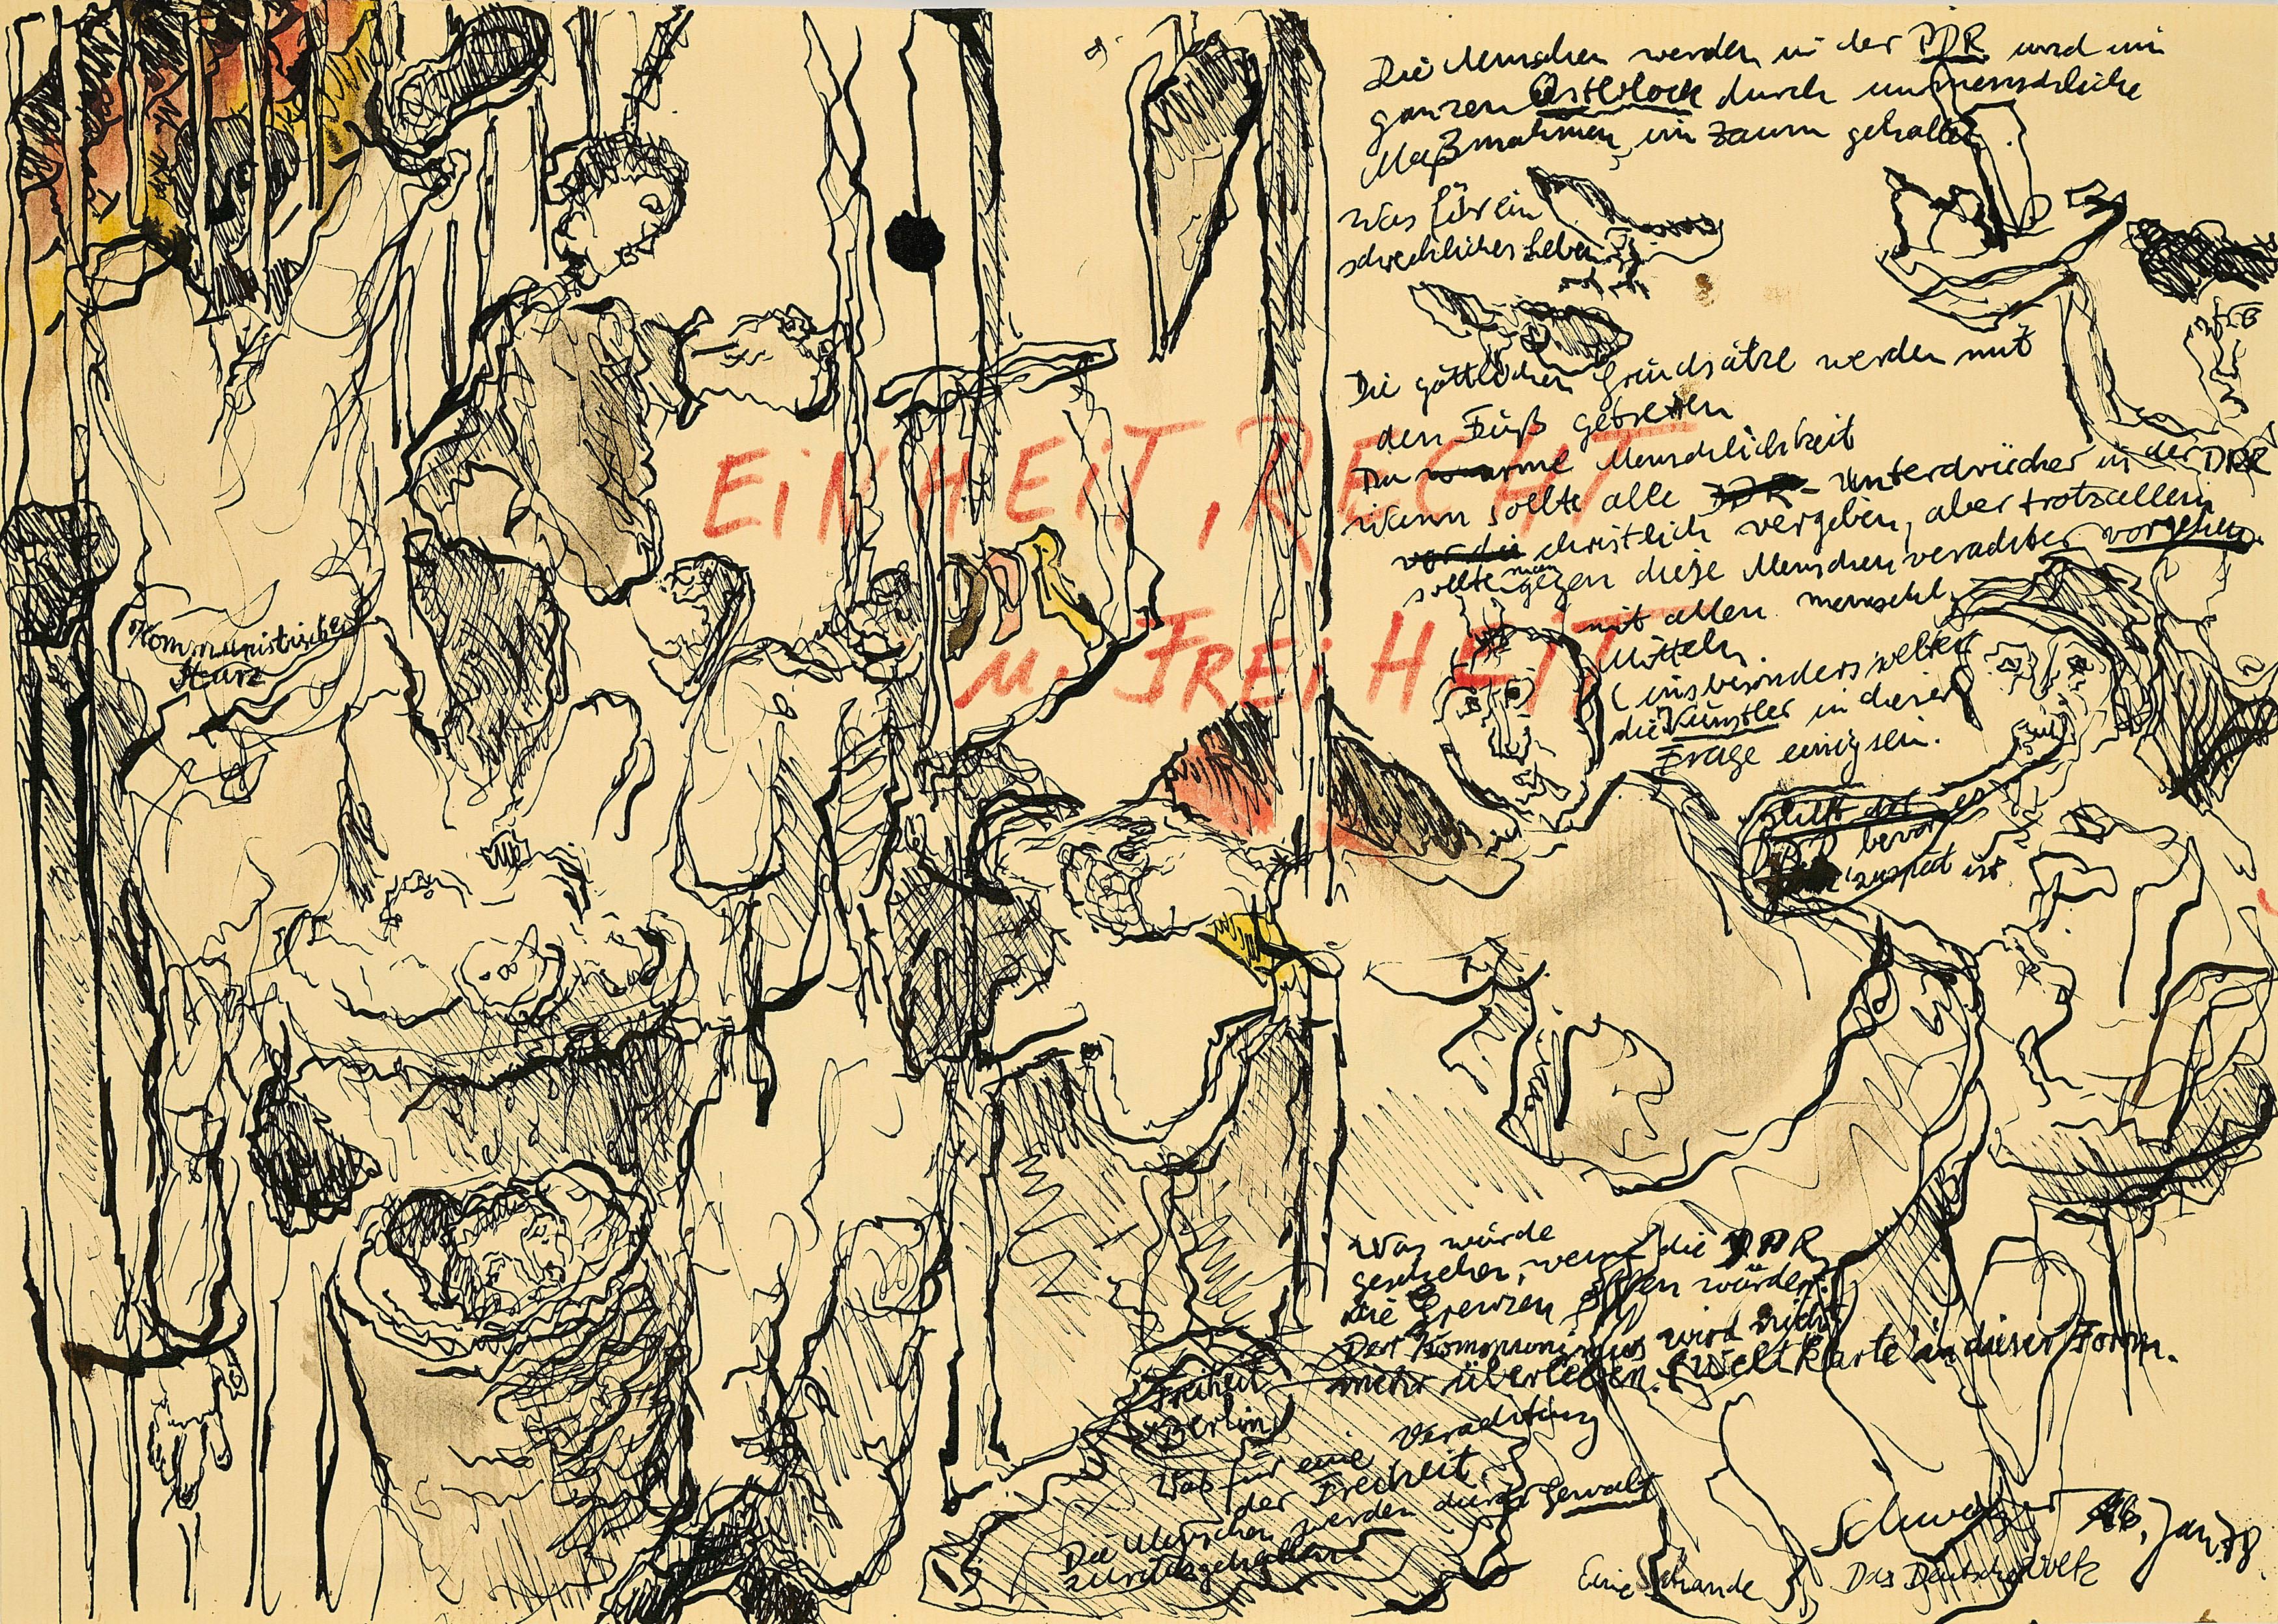 Die Menschen werden in der DDR und im
ganzen Ostblock durch unmenschliche
Maßnahmen, im Zaum gehalten.
Was für ein
schreckliches Leben
Die göttlichen Grundsätze werden mit
den Fuß getreten
Du arme Menschlichkeit
Mann sollte alle DDR-Unterdrücher in der DDR
christlich vergeben, aber trotzallem
sollte man gegen diese Menschenverachter vorgehen.
mit allen menschl.
Mitteln.
(insbesonders sollten
die Künstler in dieser
Frage einig sein.
EiNHEiT, RECHT
u. FREiHEiT
Kommunistische
Hilft der
DDR bevor es
zuspät ist.
Was würde
geschehen, wenn die DDR
die Grenzen öffen würde?
Der Kommunismus wird nicht
mehr überleben. (Weltkarte in dieser Form.
Freiheit
Berlin
Was für eine Verachtung
der Freiheit.
Die Menschen werden durch Gewalt
zurückgehalten.
Eine Schande
16. Jan. 78
Das Deutsche Volk